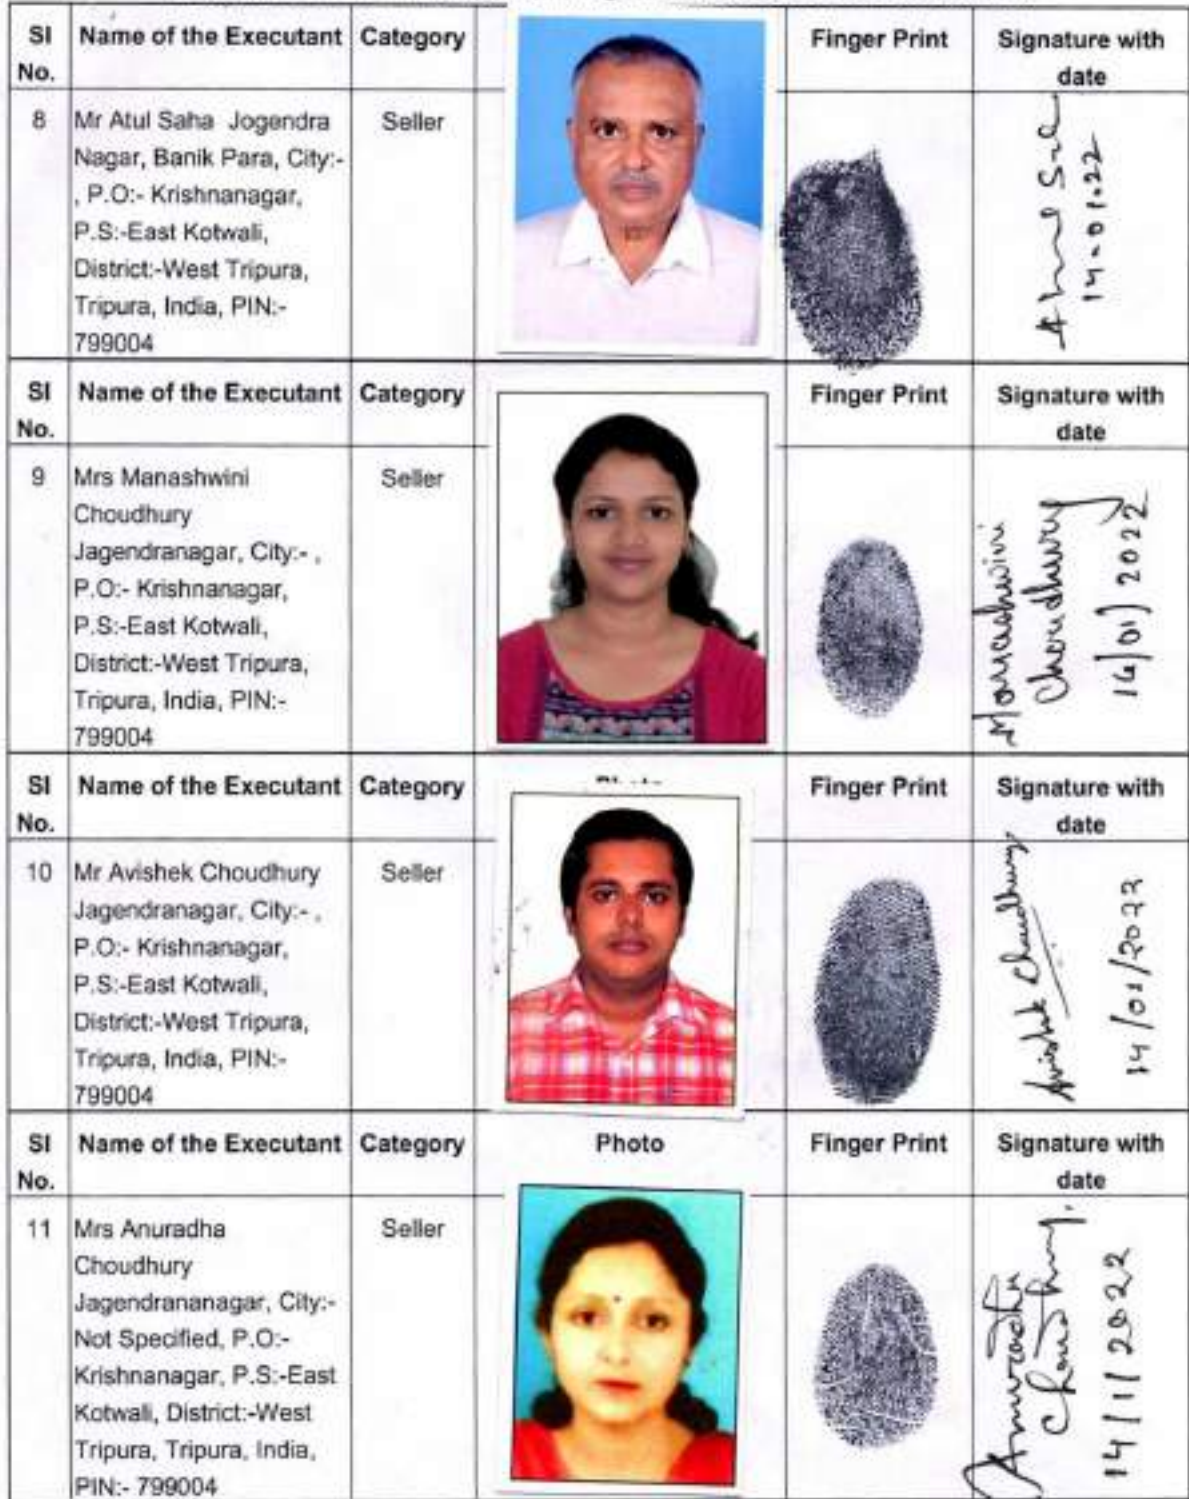 Sl No. Name of the Executant Category Finger Print Signature with date
8 Mr Atul Saha Jogendra Seller
Nagar, Banik Para, City:-
, P.O:- Krishnanagar,
P.S:-East Kotwali,
District:-West Tripura,
Tripura, India, PIN:-
799004
14.01.22
Sl No. Name of the Executant Category Finger Print Signature with date
9 Mrs Manashwini Seller
Choudhury
Jagendranagar, City:- ,
P.O:- Krishnanagar,
P.S:-East Kotwali,
District:-West Tripura,
Tripura, India, PIN:-
799004
Manashwini
Choudhury
14/01/2022
Sl No. Name of the Executant Category Finger Print Signature with date
10 Mr Avishek Choudhury Seller
Jagendranagar, City:- ,
P.O:- Krishnanagar,
P.S:-East Kotwali,
District:-West Tripura,
Tripura, India, PIN:-
799004
Avishek Choudhury
14/01/2022
Sl No. Name of the Executant Category Photo Finger Print Signature with date
11 Mrs Anuradha Seller
Choudhury
Jagendrananagar, City:-
Not Specified, P.O:-
Krishnanagar, P.S:-East
Kotwali, District:-West
Tripura, Tripura, India,
PIN:- 799004
Anuradha
Choudhury.
14/1/2022